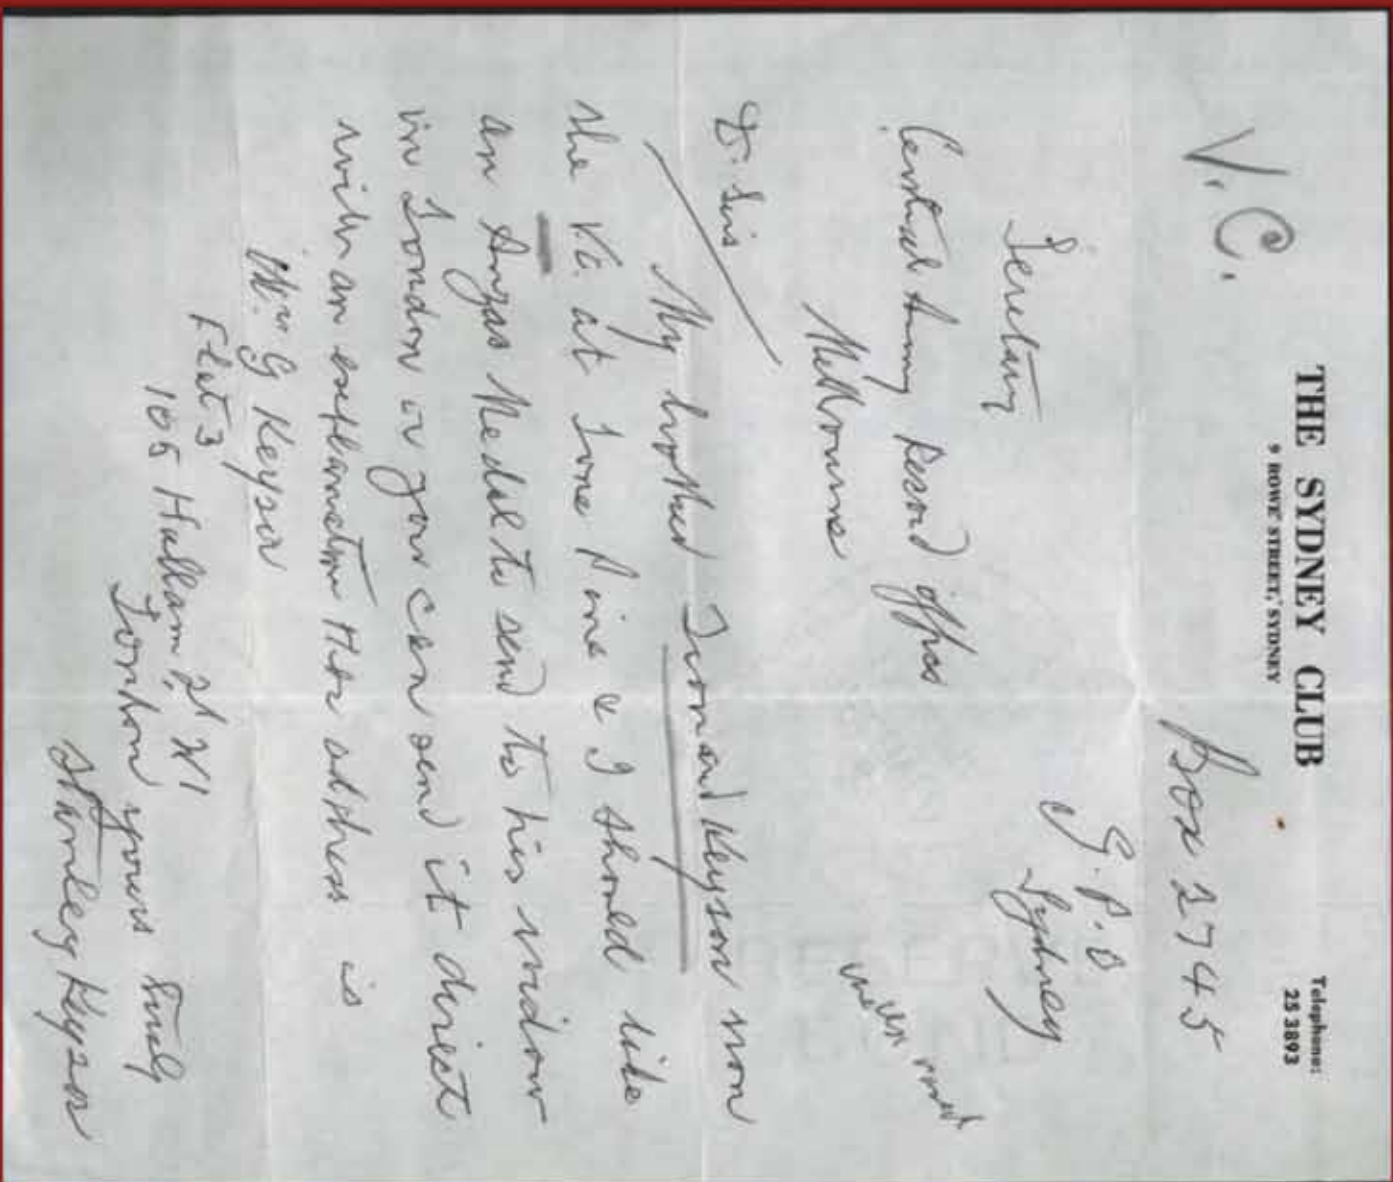 THE SYDNEY CLUB
9 ROWE STREET, SYDNEY
Telephone:
25 3893
V.C.
Box 2745
G.P.O
Sydney
Secretary
Central Army Record Office
Melbourne
D. Sir
My brother Leonard Keysor won
the VC at Lone Pine & I should like
an Anzas Medal to send to his widow
in London or you can send it direct
with an explanation Her address is
G Keysor
Flat 3
105 Hallam St W1
London
yours truly
Stanley Keysor